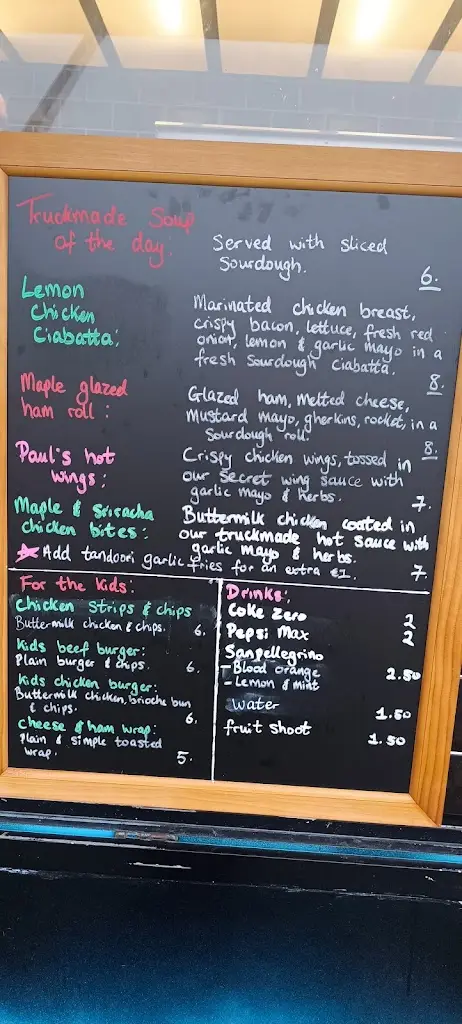 Truckmade Soup
of the day:
Served with sliced
Sourdough.
6.
Lemon
Chicken
Ciabatta:
Marinated chicken breast,
crispy bacon, lettuce, fresh red
onion, lemon & garlic mayo in a
fresh Sourdough Ciabatta.
8.
Maple glazed
ham roll:
Glazed ham, melted cheese,
mustard mayo, gherkins, rocket, in a
Sourdough roll.
8.
Paul's hot
wings:
Crispy chicken wings, tossed in
our secret wing sauce with
garlic mayo & herbs.
7.
Maple & Sriracha
chicken bites:
Buttermilk chicken coated in
our truckmade hot sauce with
garlic mayo & herbs.
7.
Add tandoori garlic fries for an extra €1.
For the kids:
Chicken Strips & chips
Buttermilk chicken & chips.
6.
Kids beef burger:
Plain burger & chips.
6.
Kids chicken burger:
Buttermilk chicken, brioche bun
& chips.
6.
Cheese & ham wrap:
Plain & simple toasted
wrap.
5.
Drinks:
Coke Zero 2
Pepsi Max 2
Sanpellegrino
- Blood orange 2.50
- Lemon & mint
Water 1.50
fruit shoot 1.50